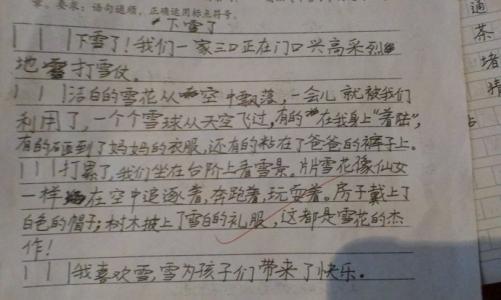 章。要求:语句通顺,正确运用标点符号。
下雪了
下雪了!我们一家三口正在门口兴高采烈
地打雪仗。
洁白的雪花从空中飘落,一会儿就被我们
利用了,一个个雪球从天空飞过,有的在我身上"着陆",
有的砸到了妈妈的衣服,还有的粘在了爸爸的裤子上。
打累了,我们坐在台阶上看雪景。片片雪花像仙女
一样在空中追逐着,奔跑着,玩耍着。房子戴上了
白色的帽子;树木披上了雪白的礼服,这都是雪花的杰
作!
我喜欢雪,雪为孩子们带来了快乐。
茶
堵